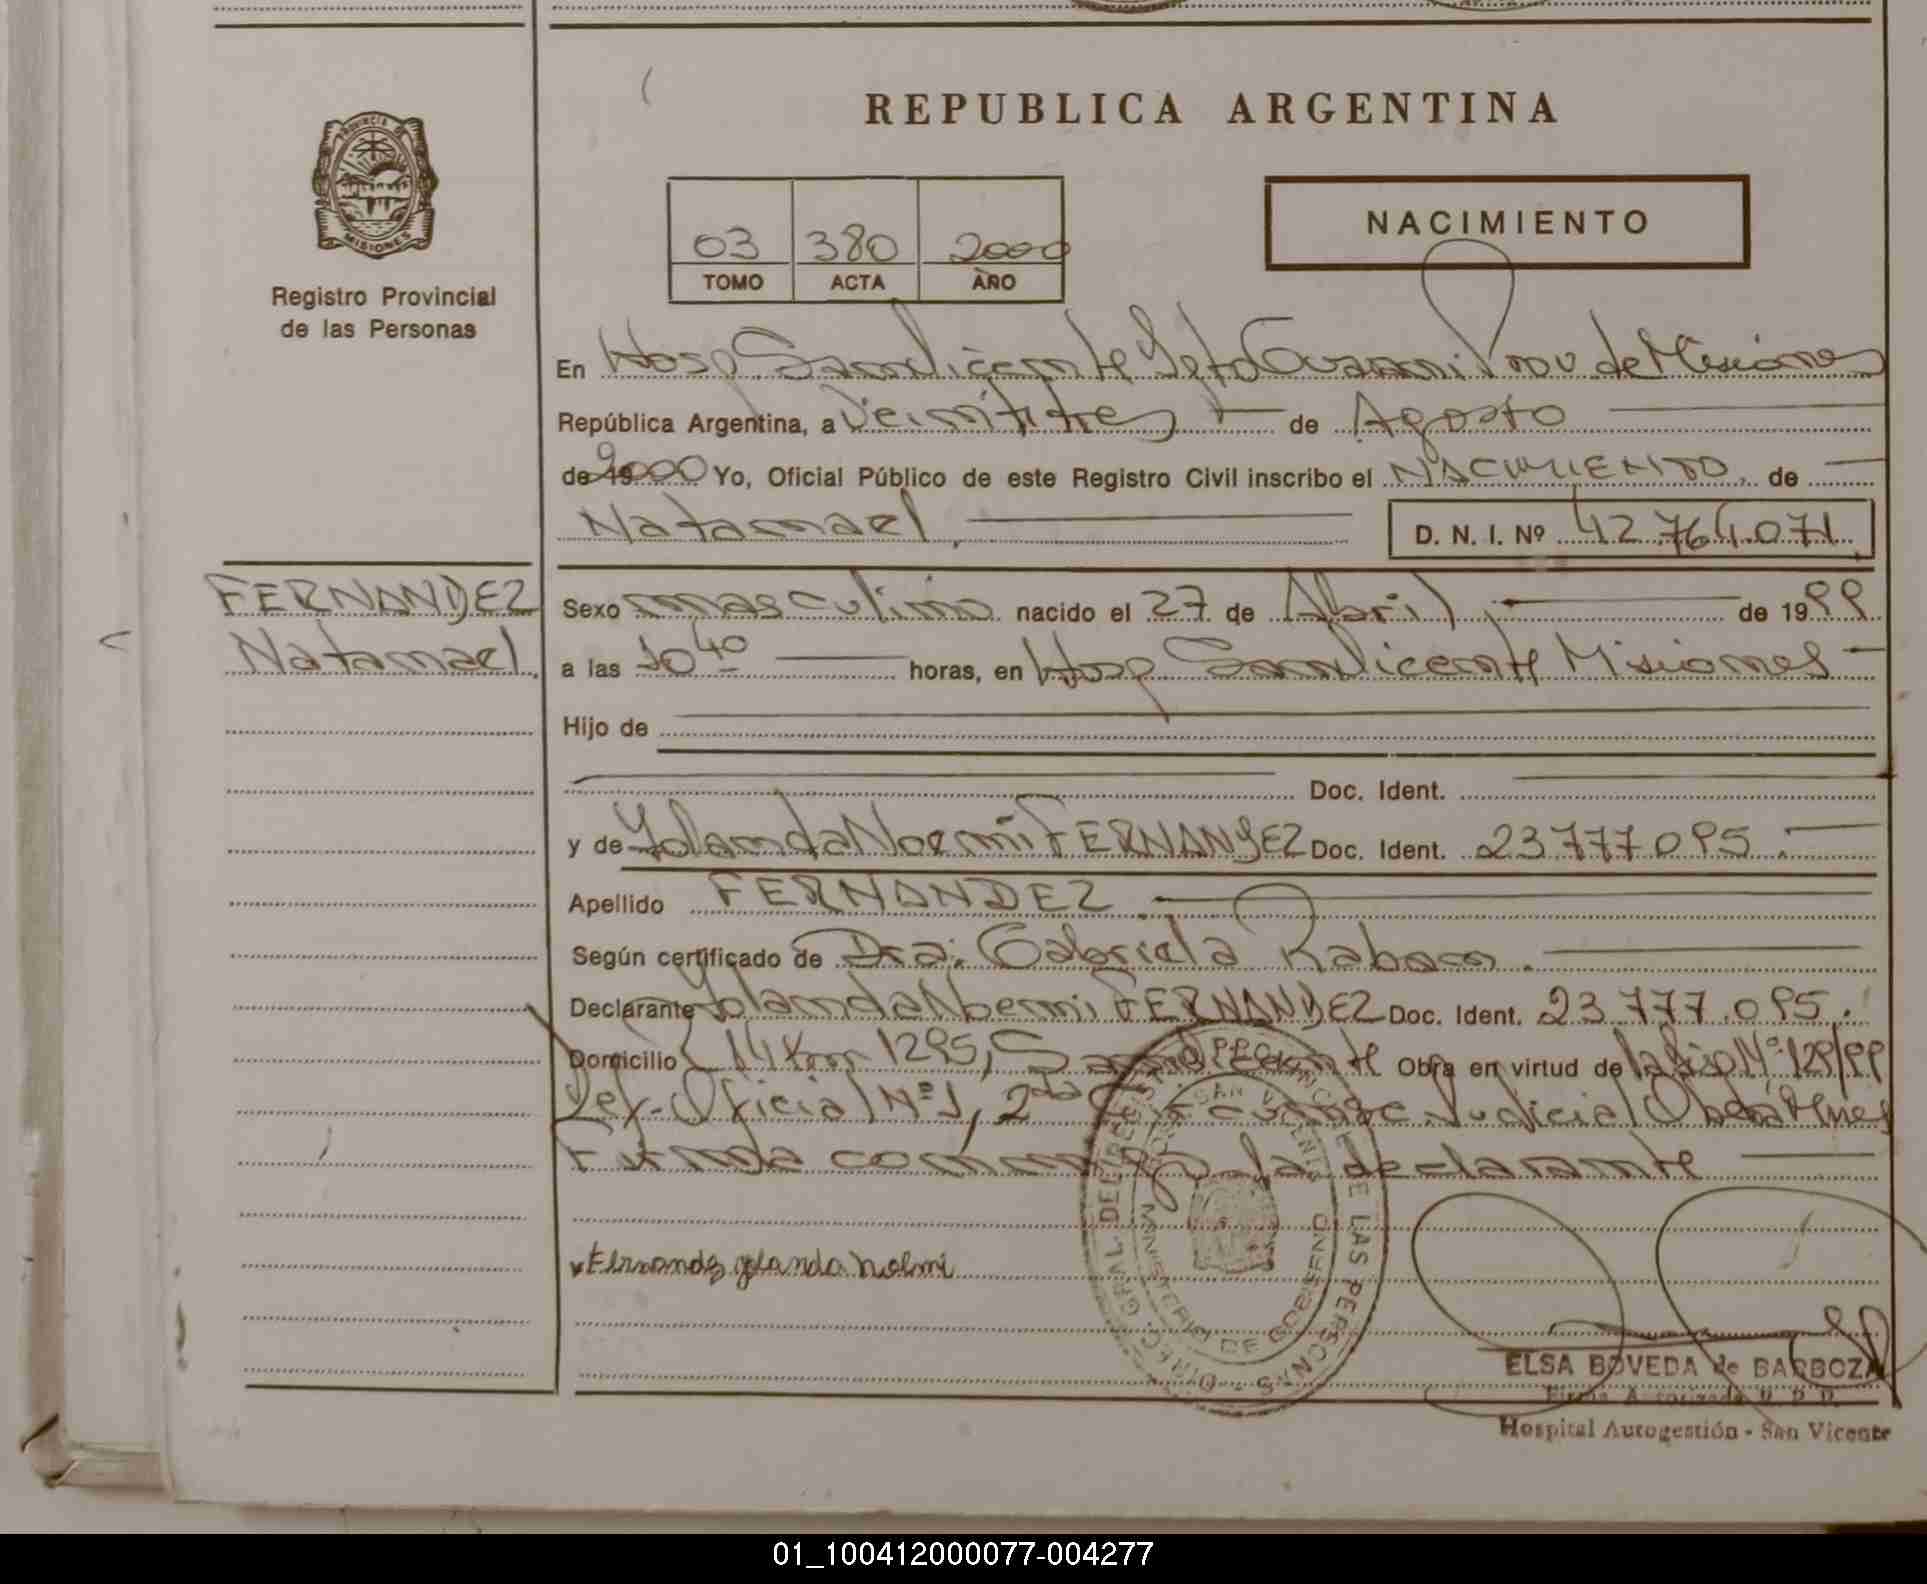 REPUBLICA ARGENTINA
PROVINCIA DE
MISIONES
Registro Provincial
de las Personas
03 380 2000
TOMO ACTA AÑO
NACIMIENTO
En Hosp San Vicente Dpto Guarani Prov de Misiones
República Argentina, a Veintitres de Agosto
de 19 2000 Yo, Oficial Público de este Registro Civil inscribo el NACIMIENTO, de
Natanael. D. N. I. Nº 42.764.071.
FERNANDEZ
Natanael.
Sexo masculino nacido el 27 de Abril de 1999
a las 10 40 horas, en Hosp San Vicente Misiones
Hijo de
Doc. Ident.
y de Yolanda Noemi FERNANDEZ Doc. Ident. 23.777.095.
Apellido FERNANDEZ
Según certificado de Dra. Gabriela
Declarante Yolanda Noemi FERNANDEZ Doc. Ident. 23.777.095.
Domicilio 14 Km 1295, San Vicente Obra en virtud de Nº 129/99
Def. Oficial Nº 1, 2da Circunsc. Judicial Oberá Mnes
Firma la declarante
Fernandez yolanda noemi
DIREC. GRAL. DEL REGISTRO PROVINCIAL DE LAS PERSONAS
SAN VICENTE
MINISTERIO DE GOBIERNO
ELSA BOVEDA de BARBOZA
Firma Autorizada R. P. P.
Hospital Autogestión - San Vicente
01_100412000077-004277